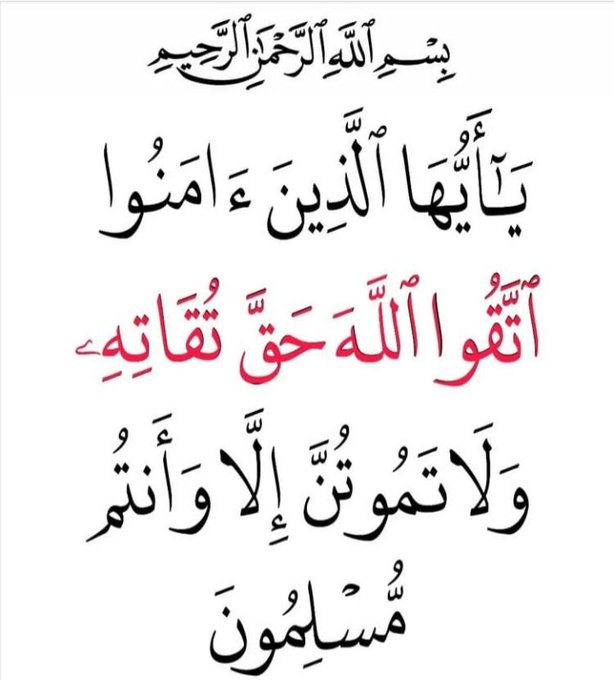 بِسْمِ ٱللَّهِ ٱلرَّحْمَٰنِ ٱلرَّحِيمِ
يَـٰٓأَيُّهَا ٱلَّذِينَ ءَامَنُوا
ٱتَّقُوا ٱللَّهَ حَقَّ تُقَاتِهِۦ
وَلَا تَمُوتُنَّ إِلَّا وَأَنتُم
مُّسْلِمُونَ